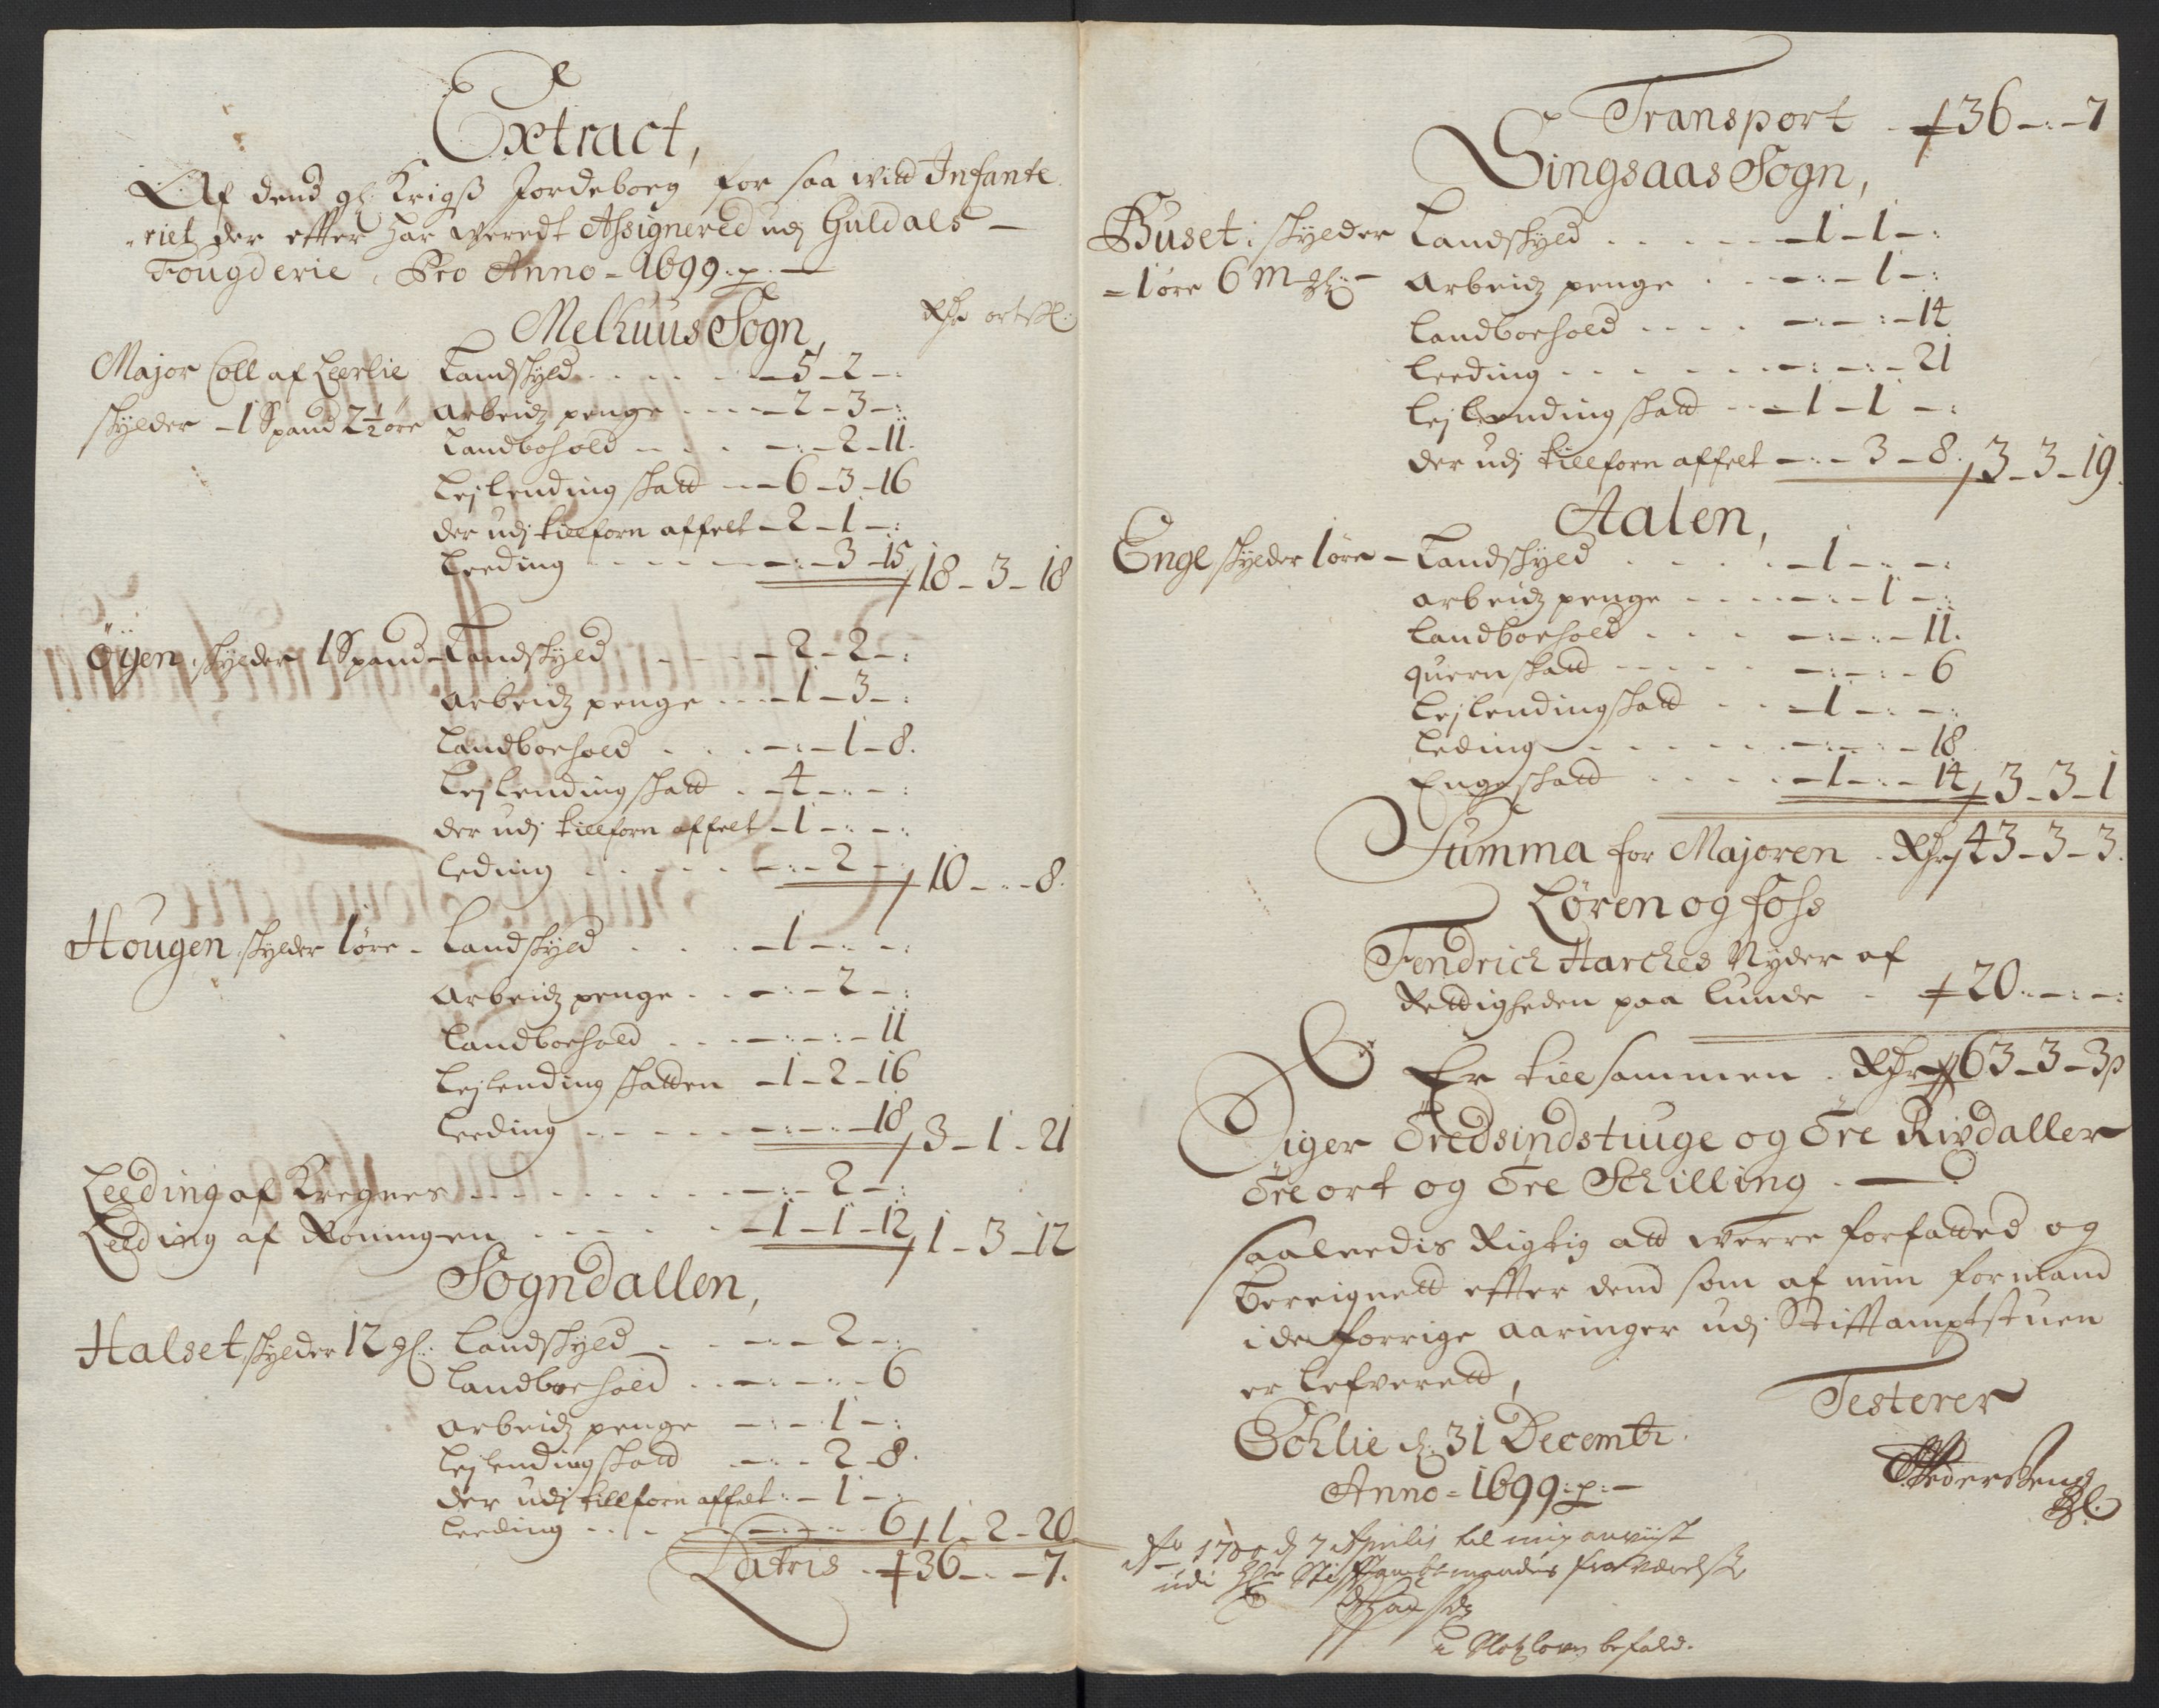 Extract,
Af dend gl: Krigs Jordeborg for saa vitt Infante
riet der effter har veredt Assignered udj Guldals
Fougderie, Pro Anno 1699.p.
Melhuus Sogn,
Rdr ort sk:
Major Coll af Leerlie Landskyld - 5 - 2 -:
skylder - 1 Spand 2½ øre Arbeidz penge - 2 - 3 -:
Landbohold -:- 2 - 11.
Lejlending skatt - 6 - 3 - 16
der udj tillforn affelt - 2 - 1 -:
Leeding -:- 3 - 15 / 18 - 3 - 18
Öÿen skylder 1 Spand - Landskyld - 2 - 2 -:
Arbeidz penge - 1 - 3 -:
Landboehold -:- 1 - 8.
Lejlending skatt - 4 -:-:
der udj tillforn affelt - 1 -:-:
Leding -:- 2 -: / 10 -:- 8.
Hougen skylder 1 øre - Landskyld - 1 -:-:
Arbeidz penge -:- 2 -:
Landboehold -:-:- 11
Lejlending skatten - 1 - 2 - 16
Leeding -:-:- 18 / 3 - 1 - 21
Leeding af Kregnes -:- 2 -:
Leeding af Röningen - 1 - 1 - 12 / 1 - 3 - 12
Sogndallen,
Halset, skylder 12 gl: Landskyld -:- 2 -:
Landboehold -:-:- 6
Arbeidz penge -:- 1 -:
Lejlending skatt -:- 2 - 8.
der udj tillforn affelt: - 1 -:
Leeding -:-:- 6 / 1 - 2 - 20
Latris - 36 -:- 7.
Transport - 36 -:- 7
Singsaas Sogn,
Buset: skylder Landskyld - 1 - 1 -:
- 1 øre 6 M gl: - Arbeidz penge -:- 1 -:
Landboehold -:-:- 14
Leeding -:-:- 21
Lejlending skatt - 1 - 1 -:
der udj tillforn affelt -:- 3 - 8. / 3 - 3 - 19.
Aalen,
Enge skylder 1 øre - Landskyld - 1 -:-:
Arbeidz penge -:- 1 -:
Landboehold -:-:- 11.
quern skatt -:-:- 6
Lejlending skatt - 1 -:-:
Leding -:-:- 18
Enge skatt - 1 -:- 14 / 3 - 3 - 1
Summa for Majoren - Rdr 43 - 3 - 3.
Løren og Foss
Fendrich Harches Nyder af
Rettigheden paa Lunde - 20 -:-:
Er tillsammen - Rdr 63 - 3 - 3 p
Siger Tredsindstiuge og Tre Rixdaller
Tre ort og Tre Schilling -
saaledis Rigtig att werre forfatted og
bereignett effter dend som af min formand
i de forrige aaringer udj Stifftamptstuen
er Lefverett,
Sohlie d: 31 Decembr.
Anno 1699:p:-
Testerer
Ao 1700 d 7 Aprilis til mig anviist
udi Hr Stifftamptmandens fraværelse
i Slotzlovn befald.